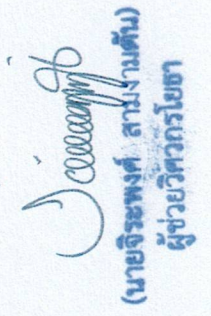 (นายจิระพงศ์ สามงามตัน)
ผู้ช่วยวิศวกรโยธา